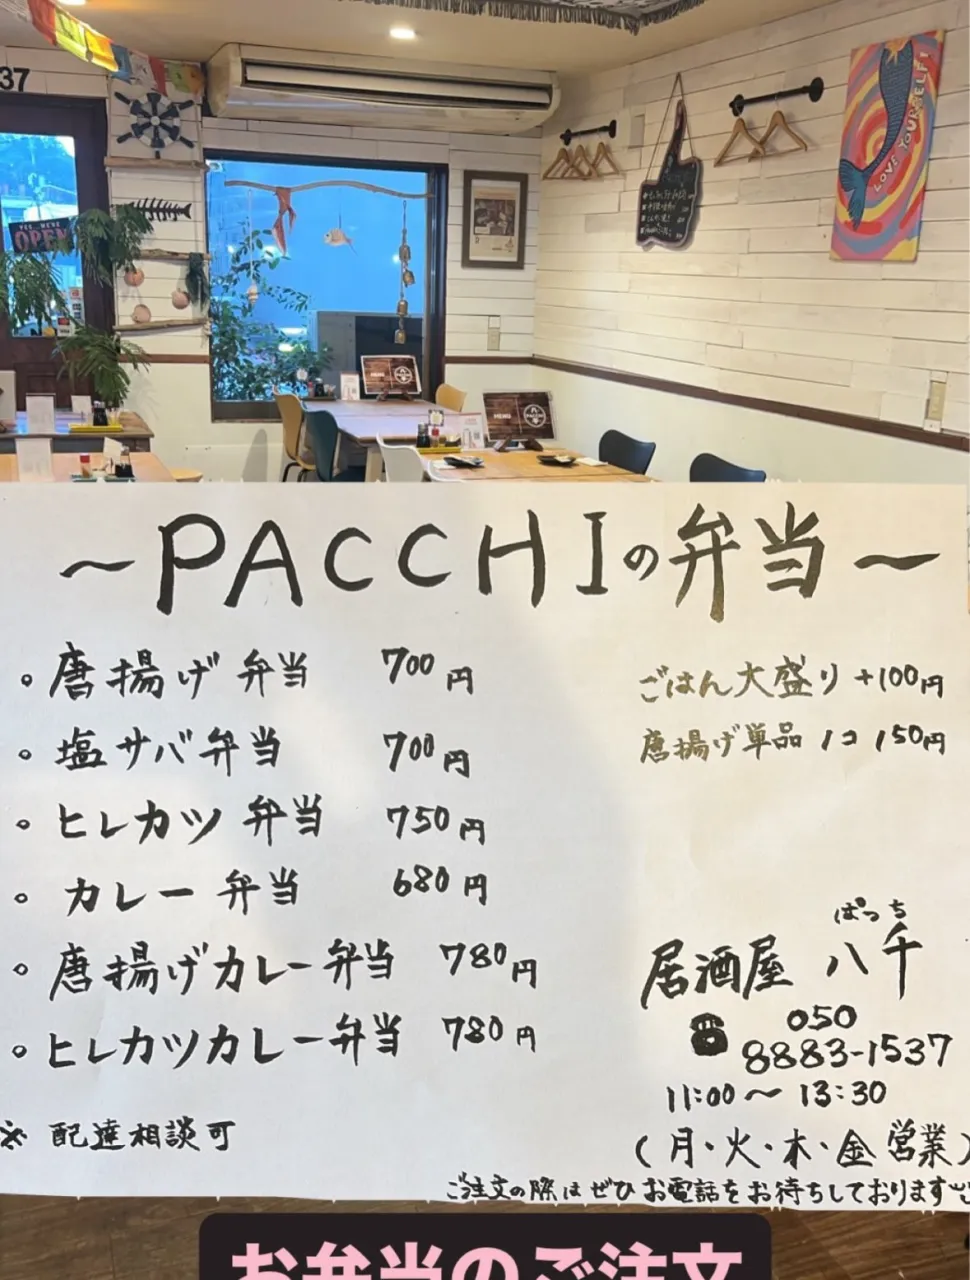 37
YES WE'RE
OPEN
LOVE YOURSELF!
MENU
PACCHI
MENU
PACCHI
～PACCHIの弁当～
。唐揚げ弁当 700円
。塩サバ弁当 700円
。ヒレカツ弁当 750円
。カレー弁当 680円
。唐揚げカレー弁当 780円
。ヒレカツカレー弁当 780円
※ 配達相談可
ごはん大盛り +100円
唐揚げ単品 1コ 150円
ぱっち
居酒屋 八千
☎ 050
8883-1537
11:00～13:30
(月・火・木・金 営業)
ご注文の際はぜひお電話をお待ちしております
お弁当のご注文